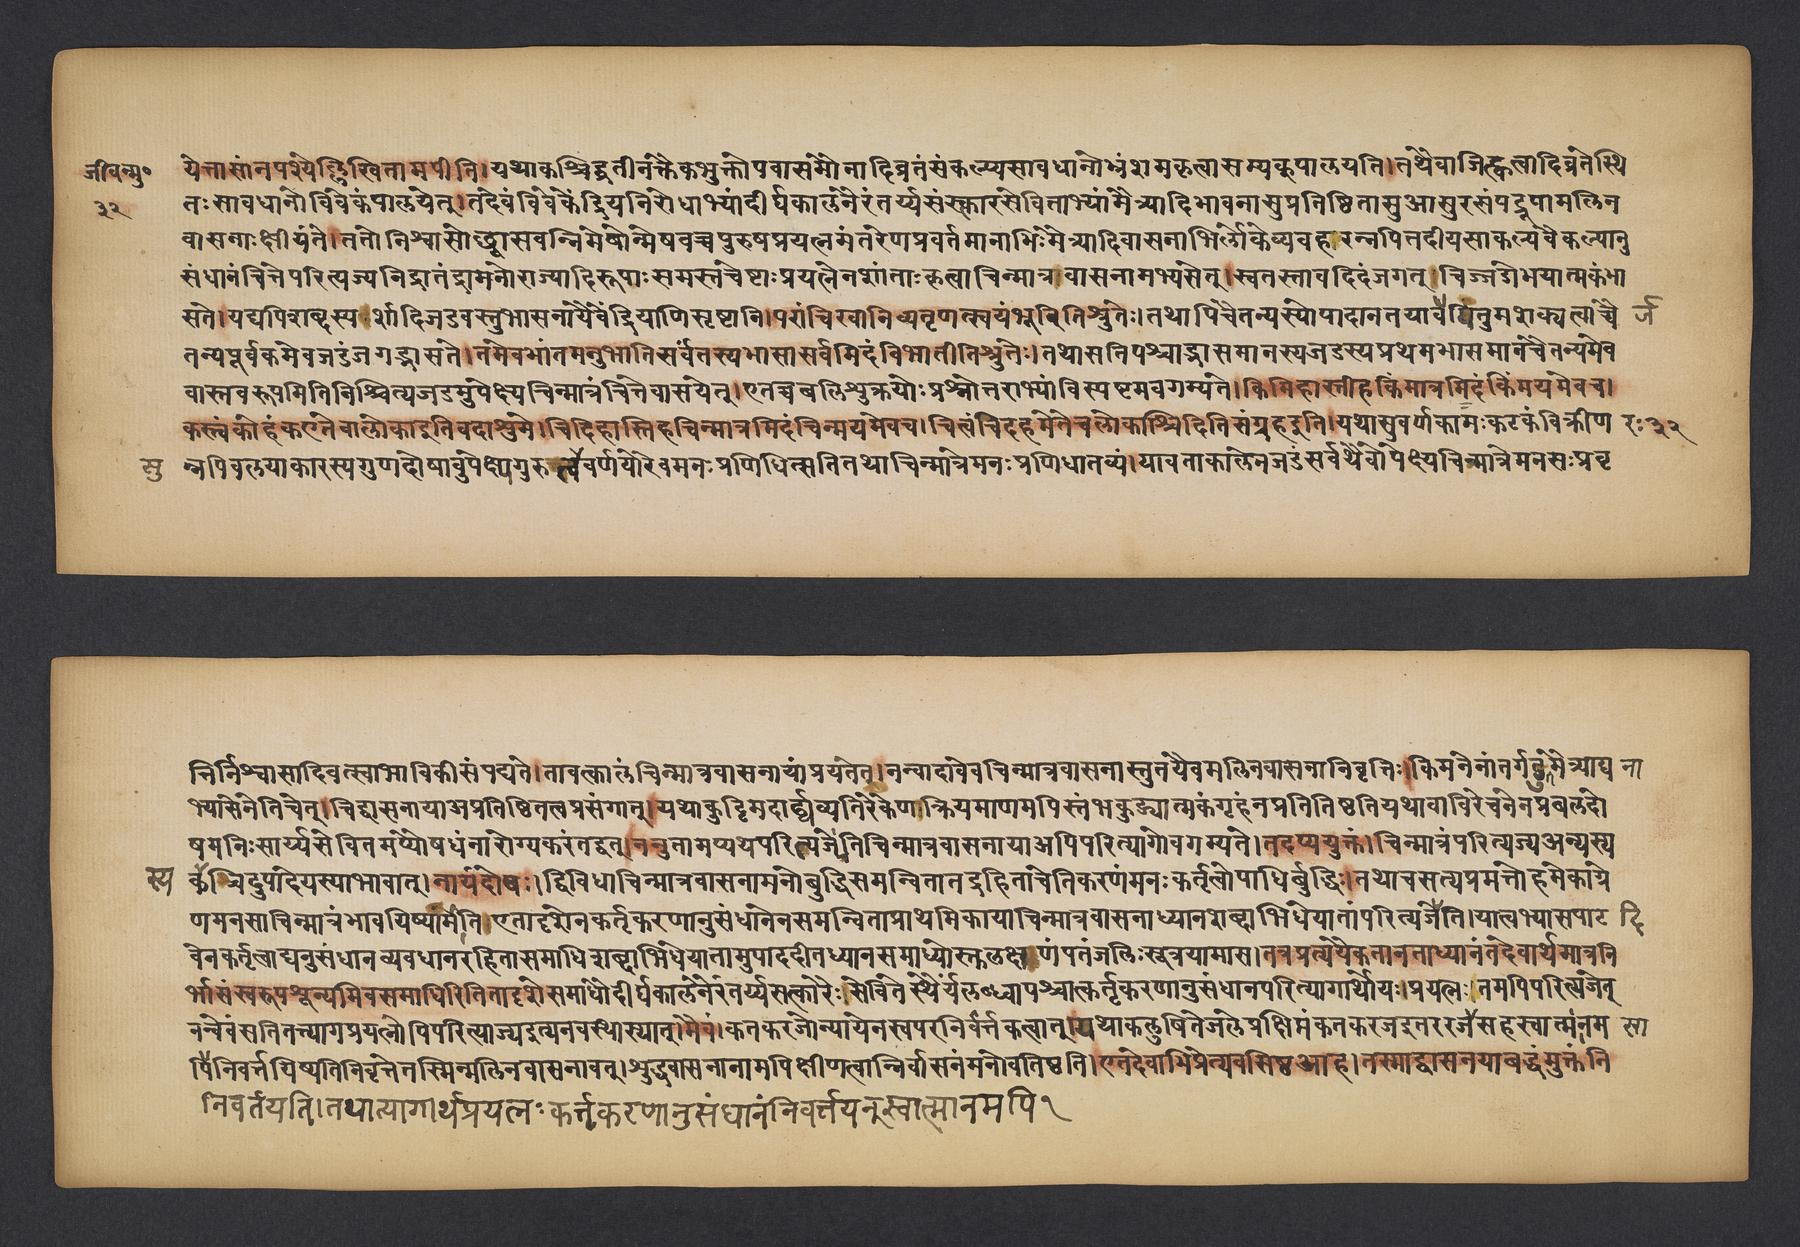 जीवन्मु०
३२
येत्तासांनपश्येल्लिखितामपीति।यथाकश्चिद्व्रतीनक्तैकभुक्तोपवासमौनादिव्रतंसंकल्प्यसावधानोभ्रंशमकृत्वासम्यक्पालयति।तथैवाजिह्वत्वादिव्रतेस्थि
तःसावधानोविवेकंपालयेत्।तदेवंविवेकेंद्रियनिरोधाभ्यांदीर्घकालनैरंतर्य्यसंस्कारसेविताभ्यांमैत्र्यादिभावनासुप्रतिष्ठितासुआसुरसंपद्रूपामलिन
वासनाःक्षीयंते।ततोनिश्वासोच्छ्वासवन्निमेषोन्मेषवच्चपुरुषप्रयत्नमंतरेणप्रवर्तमानाभिःमैत्र्यादिवासनाभिर्लोकेव्यवहरन्नपितदीयसाकल्यवैकल्यानु
संधानंचित्तेपरित्यज्यनिद्रातंद्रामनोराज्यादिरूपाःसमस्तचेष्टाःप्रयत्नेनशांताःकृत्वाचिन्मात्रवासनामभ्यसेत्।स्वतस्तावदिदंजगत्।चिज्जडोभयात्मकंभा
सते।यद्यपिशब्दस्पर्शादिजडवस्तुभासनायैवेंद्रियाणिसृष्टानि।परांचिखानिव्यतृणत्स्वयंभूरितिश्रुतेः।तथापिचैतन्यस्योपादानतयावर्यितुमशक्यत्वाच्चै र्ज
तन्यपूर्वकमेवजडंजगद्भासते।तमेवभांतमनुभातिसर्वंतस्यभासासर्वमिदंविभातीतिश्रुतेः।तथासतिपश्चाद्भासमानस्यजडस्यप्रथमभासमानंचैतन्यमेव
वास्तवरूपमितिनिश्चित्यजडमुपेक्ष्यचिन्मात्रंचित्तेवासयेत्।एतच्चबलिशुक्रयोःप्रश्नोत्तराभ्यांविस्पष्टमवगम्यते।किमिहास्तीहकिंमात्रमिदंकिंमयमेवच।
कस्त्वंकोहंकएतेवालोकाइतिवदाशुमे।चिदिहास्तिहचिन्मात्रमिदंचिन्मयमेवच।चित्त्वंचिदहमेतेचलोकाश्चिदितिसंग्रहइति।यथासुवर्णकामःकटकंविक्रीण रः३२
सु न्नपिवलयाकारस्यगुणदोषावुपेक्ष्यगुरुत्ववर्णयोरेवमनःप्रणिधित्सतितथाचिन्मात्रेमनःप्रणिधातव्यं।यावताकालेनजडंसर्वथैवोपेक्ष्यचिन्मात्रेमनसःप्रवृ
त्तिर्निश्वासादिवत्स्वाभाविकीसंपद्यते।तावत्कालंचिन्मात्रवासनायांप्रयतेत।नन्वादावेवचिन्मात्रवासनास्तुतयैवमलिनवासनानिवृत्तिः।किमनेनांतर्गडुमैत्र्याद्य ना
भ्यासेनेतिचेत्।चिद्वासनायाअप्रतिष्ठितत्वप्रसंगात्।यथाकुट्टिमदार्ढ्यव्यतिरेकेणक्रियमाणमपिस्तंभकुड्यात्मकंगृहंनप्रतितिष्ठतियथावाविरेचनेनप्रबलदो
षमनिःसार्य्यसेवितमप्यौषधंनारोग्यकरंतद्वत्।ननुतामप्यथपरित्यजेतिचिन्मात्रवासनायाअपिपरित्यागोवगम्यते।तदप्ययुक्तं।चिन्मात्रंपरित्यज्यअन्यस्य
स्य कश्चिदुपादेयस्याभावात्।नायंदोषः।द्विविधाचिन्मात्रवासनामनोबुद्धिसमन्वितातद्रहिताचेतिकरणंमनःकर्तृत्वोपाधिर्बुद्धिः।तथाचसत्यप्रमत्तोहमेकाग्रे
णमनसाचिन्मात्रंभावयिष्यामीति।एतादृशेनकर्तृकरणानुसंधानेनसमन्विताप्राथमिकायाचिन्मात्रवासनाध्यानशब्दाभिधेयातांपरित्यजेति।यात्वभ्यासपाट दि
वेनकर्तृत्वाद्यनुसंधानव्यवधानरहितासमाधिशब्दाभिधेयातामुपाददीतध्यानसमाध्योस्तलक्षणंपतंजलिःसूत्रयामास।तत्रप्रत्ययैकतानताध्यानंतदेवार्थमात्रनि
र्भासंस्वरूपशून्यमिवसमाधिरितितादृशेसमाधौदीर्घकालनैरंतर्य्यसत्कारैःसेवितेस्थैर्यंलब्ध्वापश्चात्कर्तृकरणानुसंधानपरित्यागार्थोयःप्रयत्नःतमपिपरित्यजेत्
नन्वेवंसतितत्त्यागप्रयत्नोपिपरित्याज्यइत्यनवस्थास्यात्।मैवं।कतकरजोन्यायेनस्वपरनिवर्त्तकत्वात्।यथाकलुषितेजलेप्रक्षिप्तंकतकरजइतररजसहस्वात्मंनम सा
पिनिवर्त्तयिष्यतिनिवृत्तेतस्मिन्मलिनवासनावत्।शुद्धवासनानामपिक्षीणत्वान्निर्वासनंमनोवतिष्ठति।एतदेवाभिप्रेत्यवसिष्ठआह।तस्माद्वासनयाबद्धंमुक्तंनि
निवर्तयति।तथात्यागार्थप्रयत्नःकर्त्तृकरणानुसंधानंनिवर्त्तयन्स्वात्मानमपि१